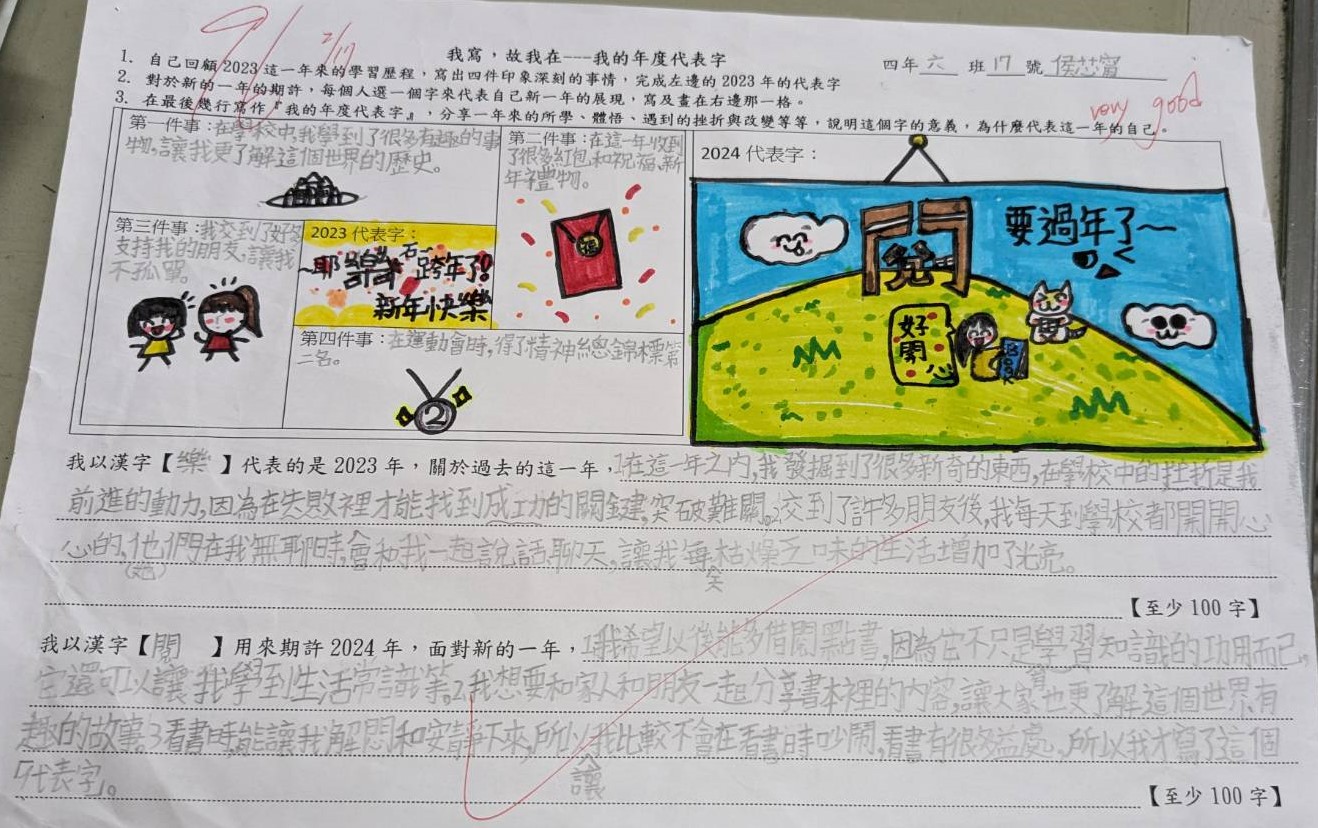 我寫，故我在----我的年度代表字
四年 六 班 17 號 侯芯甯
2/17
very good
1. 自己回顧 2023 這一年來的學習歷程，寫出四件印象深刻的事情，完成左邊的 2023 年的代表字
2. 對於新的一年的期許，每個人選一個字來代表自己新一年的展現，寫及畫在右邊那一格。
3. 在最後幾行寫作『我的年度代表字』，分享一年來的所學、體悟、遇到的挫折與改變等等，說明這個字的意義，為什麼代表這一年的自己。
第一件事：在學校中,我學到了很多有趣的事
物,讓我更了解這個世界的歷史。
第二件事：在這一年收到
了很多紅包和祝福、新
年禮物。
第三件事：我交到了好多
支持我的朋友,讓我
不孤單。
2023 代表字：
~耶 跨年了!
新年快樂
第四件事：在運動會時,得了精神總錦標第
二名。
②
2024 代表字：
閱
要過年了~
好
開
心
我以漢字【樂】代表的是 2023 年，關於過去的這一年，1.在這一年之內,我發掘到了很多新奇的東西,在學校中的挫折是我
前進的動力,因為在失敗裡才能找到成功的關鍵,突破難關。2.交到了許多朋友後,我每天到學校都開開心
心的,他(她)們在我無聊時,會和我一起說話聊天,讓我每天枯燥乏味的生活增加了光亮。
【至少 100 字】
我以漢字【閱】用來期許 2024 年，面對新的一年，1.我希望以後能多借閱點書,因為它不只是學習知識的功用而已,
它還可以讓我學到生活常識等。2.我想要和家人和朋友一起分享書本裡的內容,讓大家也更了解這個世界有
趣的故事。3.看書時,能讓我解悶和安靜下來,所以讓我比較不會在看書時吵鬧,看書有很多益處,所以我才寫了這個
「代表字」。
【至少 100 字】